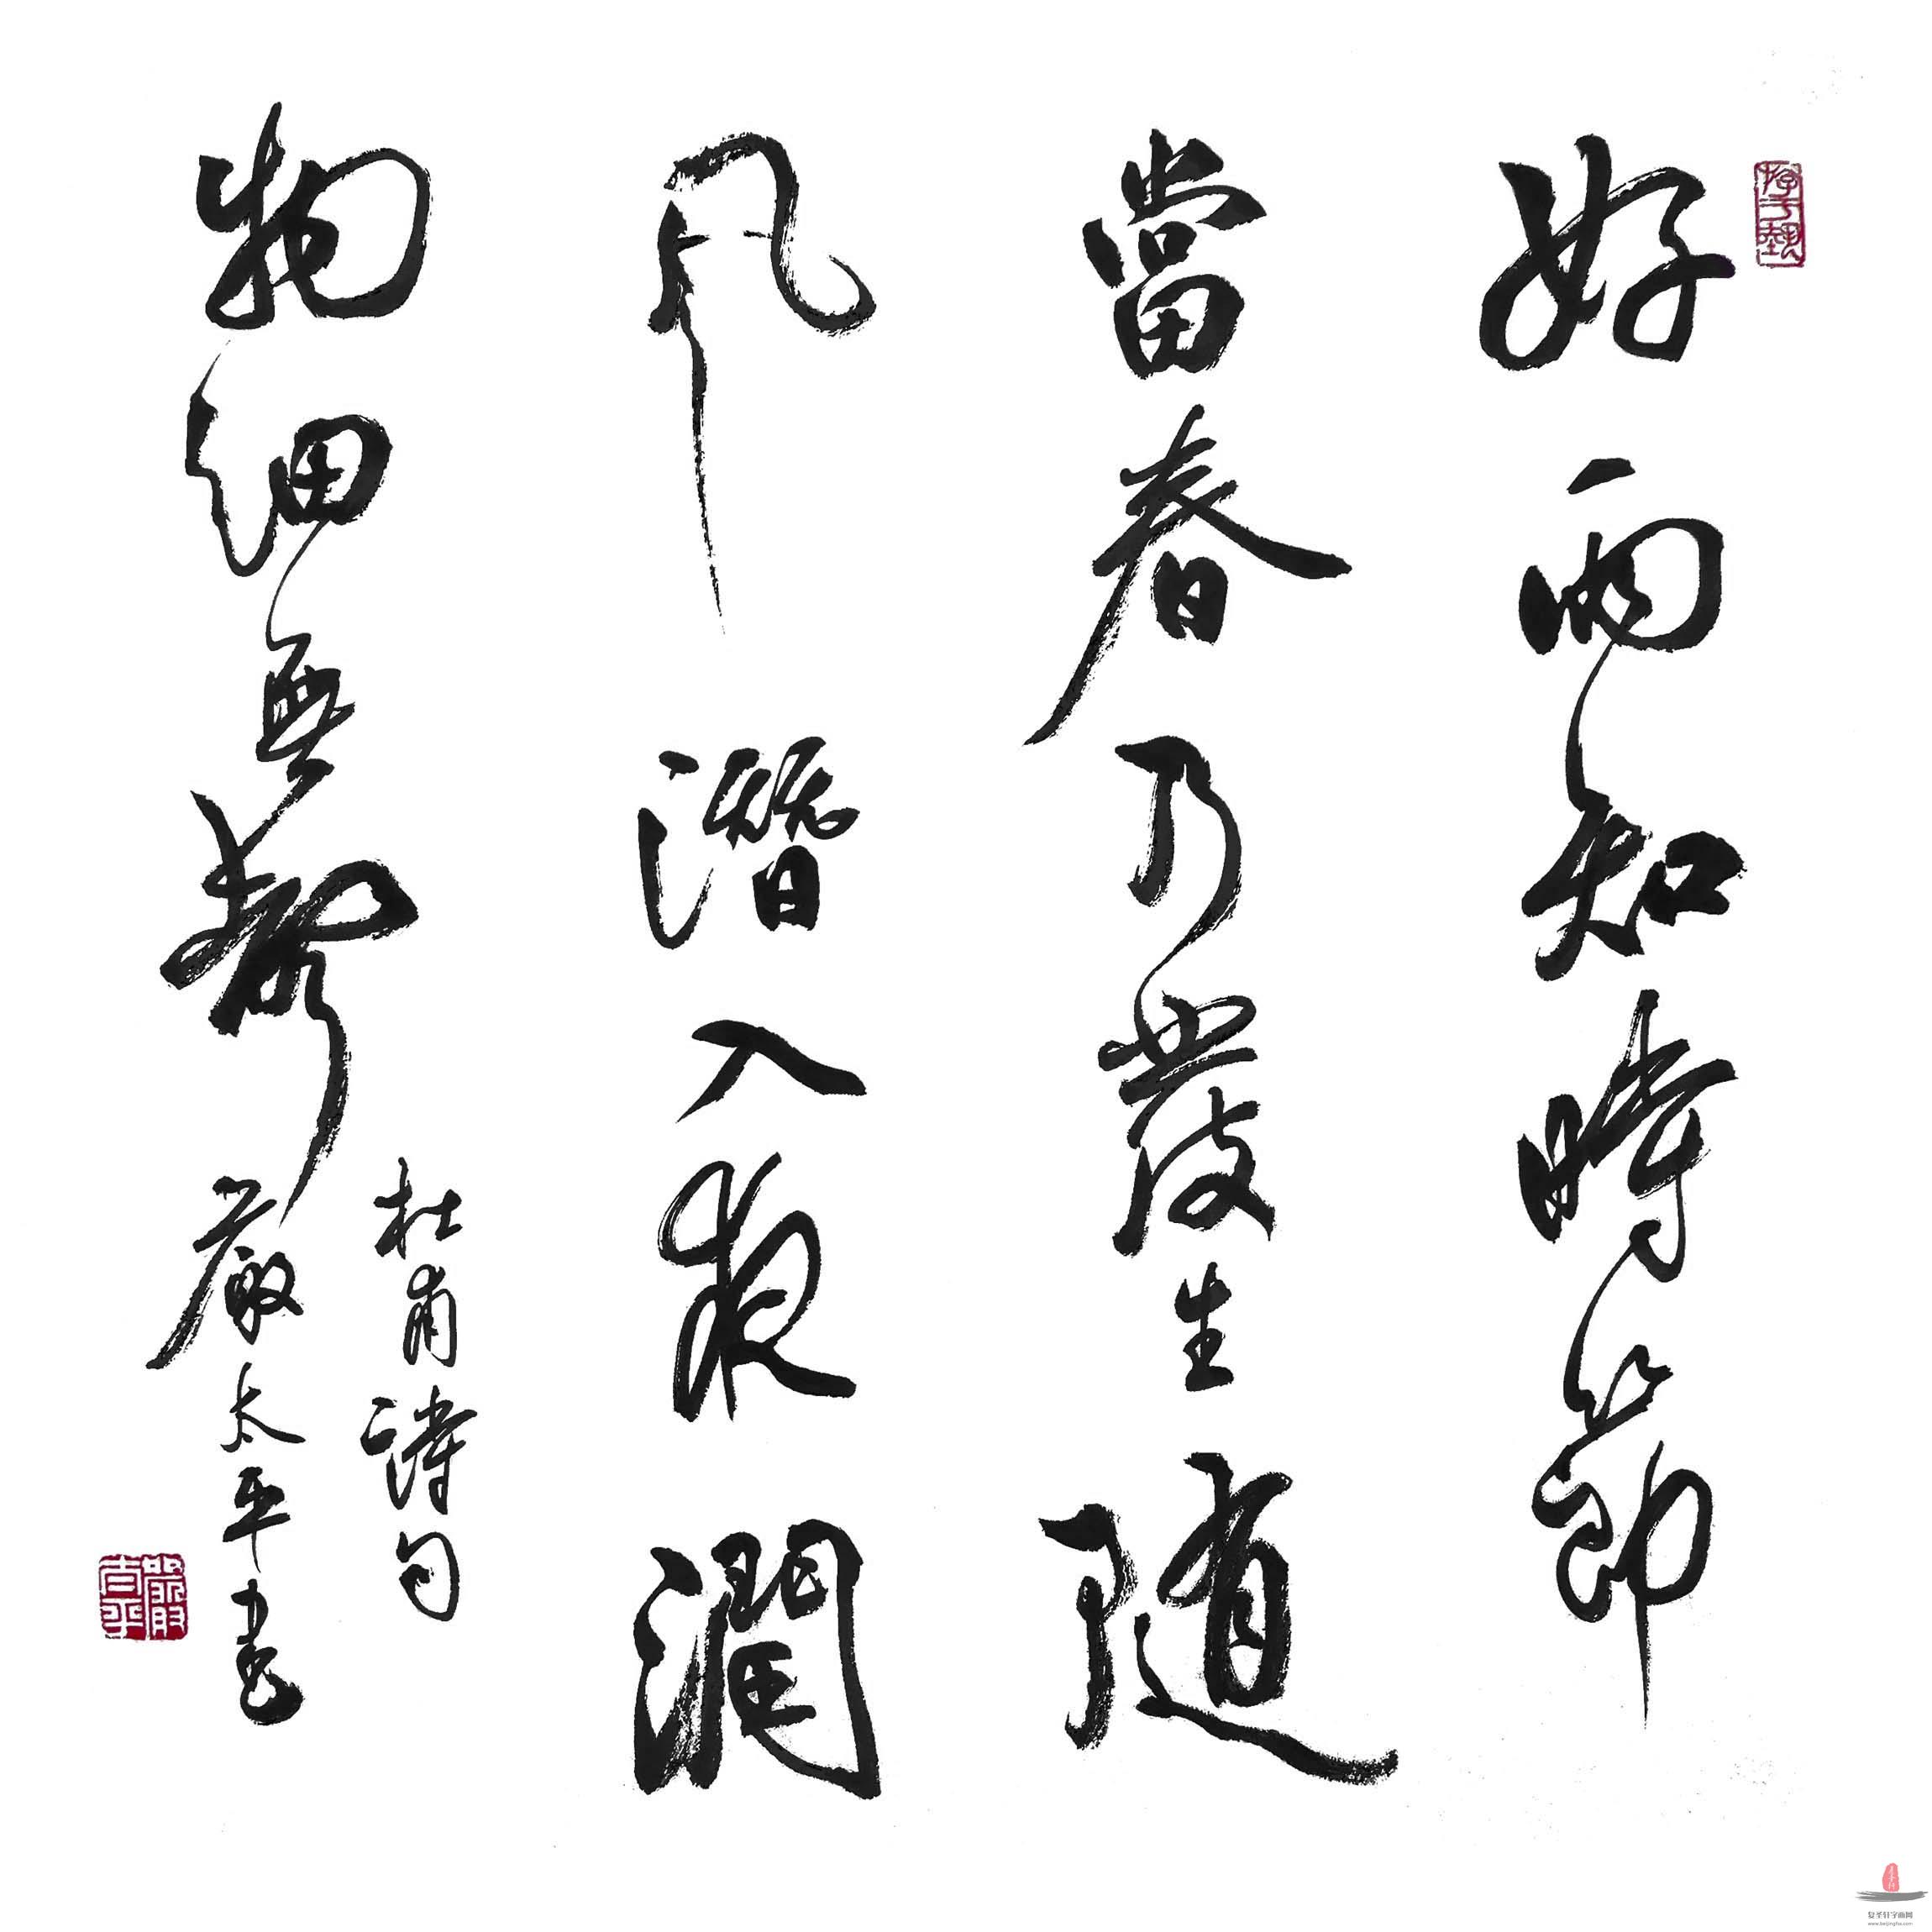 好雨知時節
當春乃發生隨
風潛入夜潤
物細無聲
杜甫詩句
嚴太平書
嚴太平